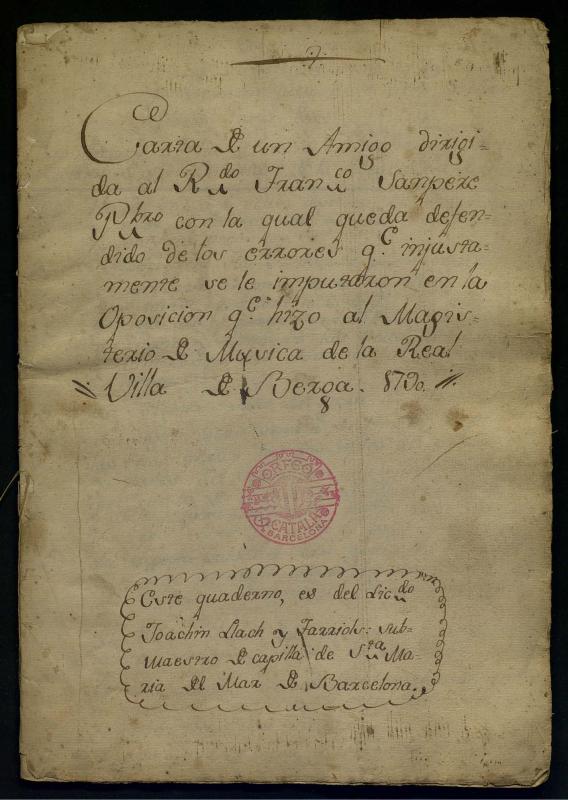 Carta de un Amigo dirigi-
da al R.do Fran.co Sanpere
Pbro con la qual queda defen-
dido de los errores q.e injusta-
mente se le imputaron en la
Oposicion q.e hizo al Magis-
terio de Musica de la Real
Villa de Berga. 1790.
8
ORFEÓ
CATALÀ
BARCELONA
Este quaderno, es del Lic.do
Joachin Llach y Farriols: sub-
maestro de capilla de S.ta Ma-
ria del Mar de Barcelona.